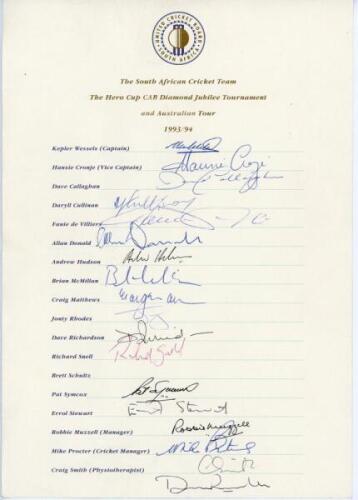 UNITED CRICKET BOARD
SOUTH AFRICA
The South African Cricket Team
The Hero Cup CAB Diamond Jubilee Tournament
and Australian Tour
1993/94
Kepler Wessels (Captain)
Hansie Cronje (Vice Captain) Hansie Cronje
Dave Callaghan
Daryll Cullinan
Fanie de Villiers
Allan Donald
Andrew Hudson
Brian McMillan
Craig Matthews
Jonty Rhodes
Dave Richardson
Richard Snell Richard Snell
Brett Schultz
Pat Symcox Pat Symcox
Errol Stewart Errol Stewart
Robbie Muzzell (Manager) Robbie Muzzell
Mike Procter (Cricket Manager) Mike Procter
Craig Smith (Physiotherapist)